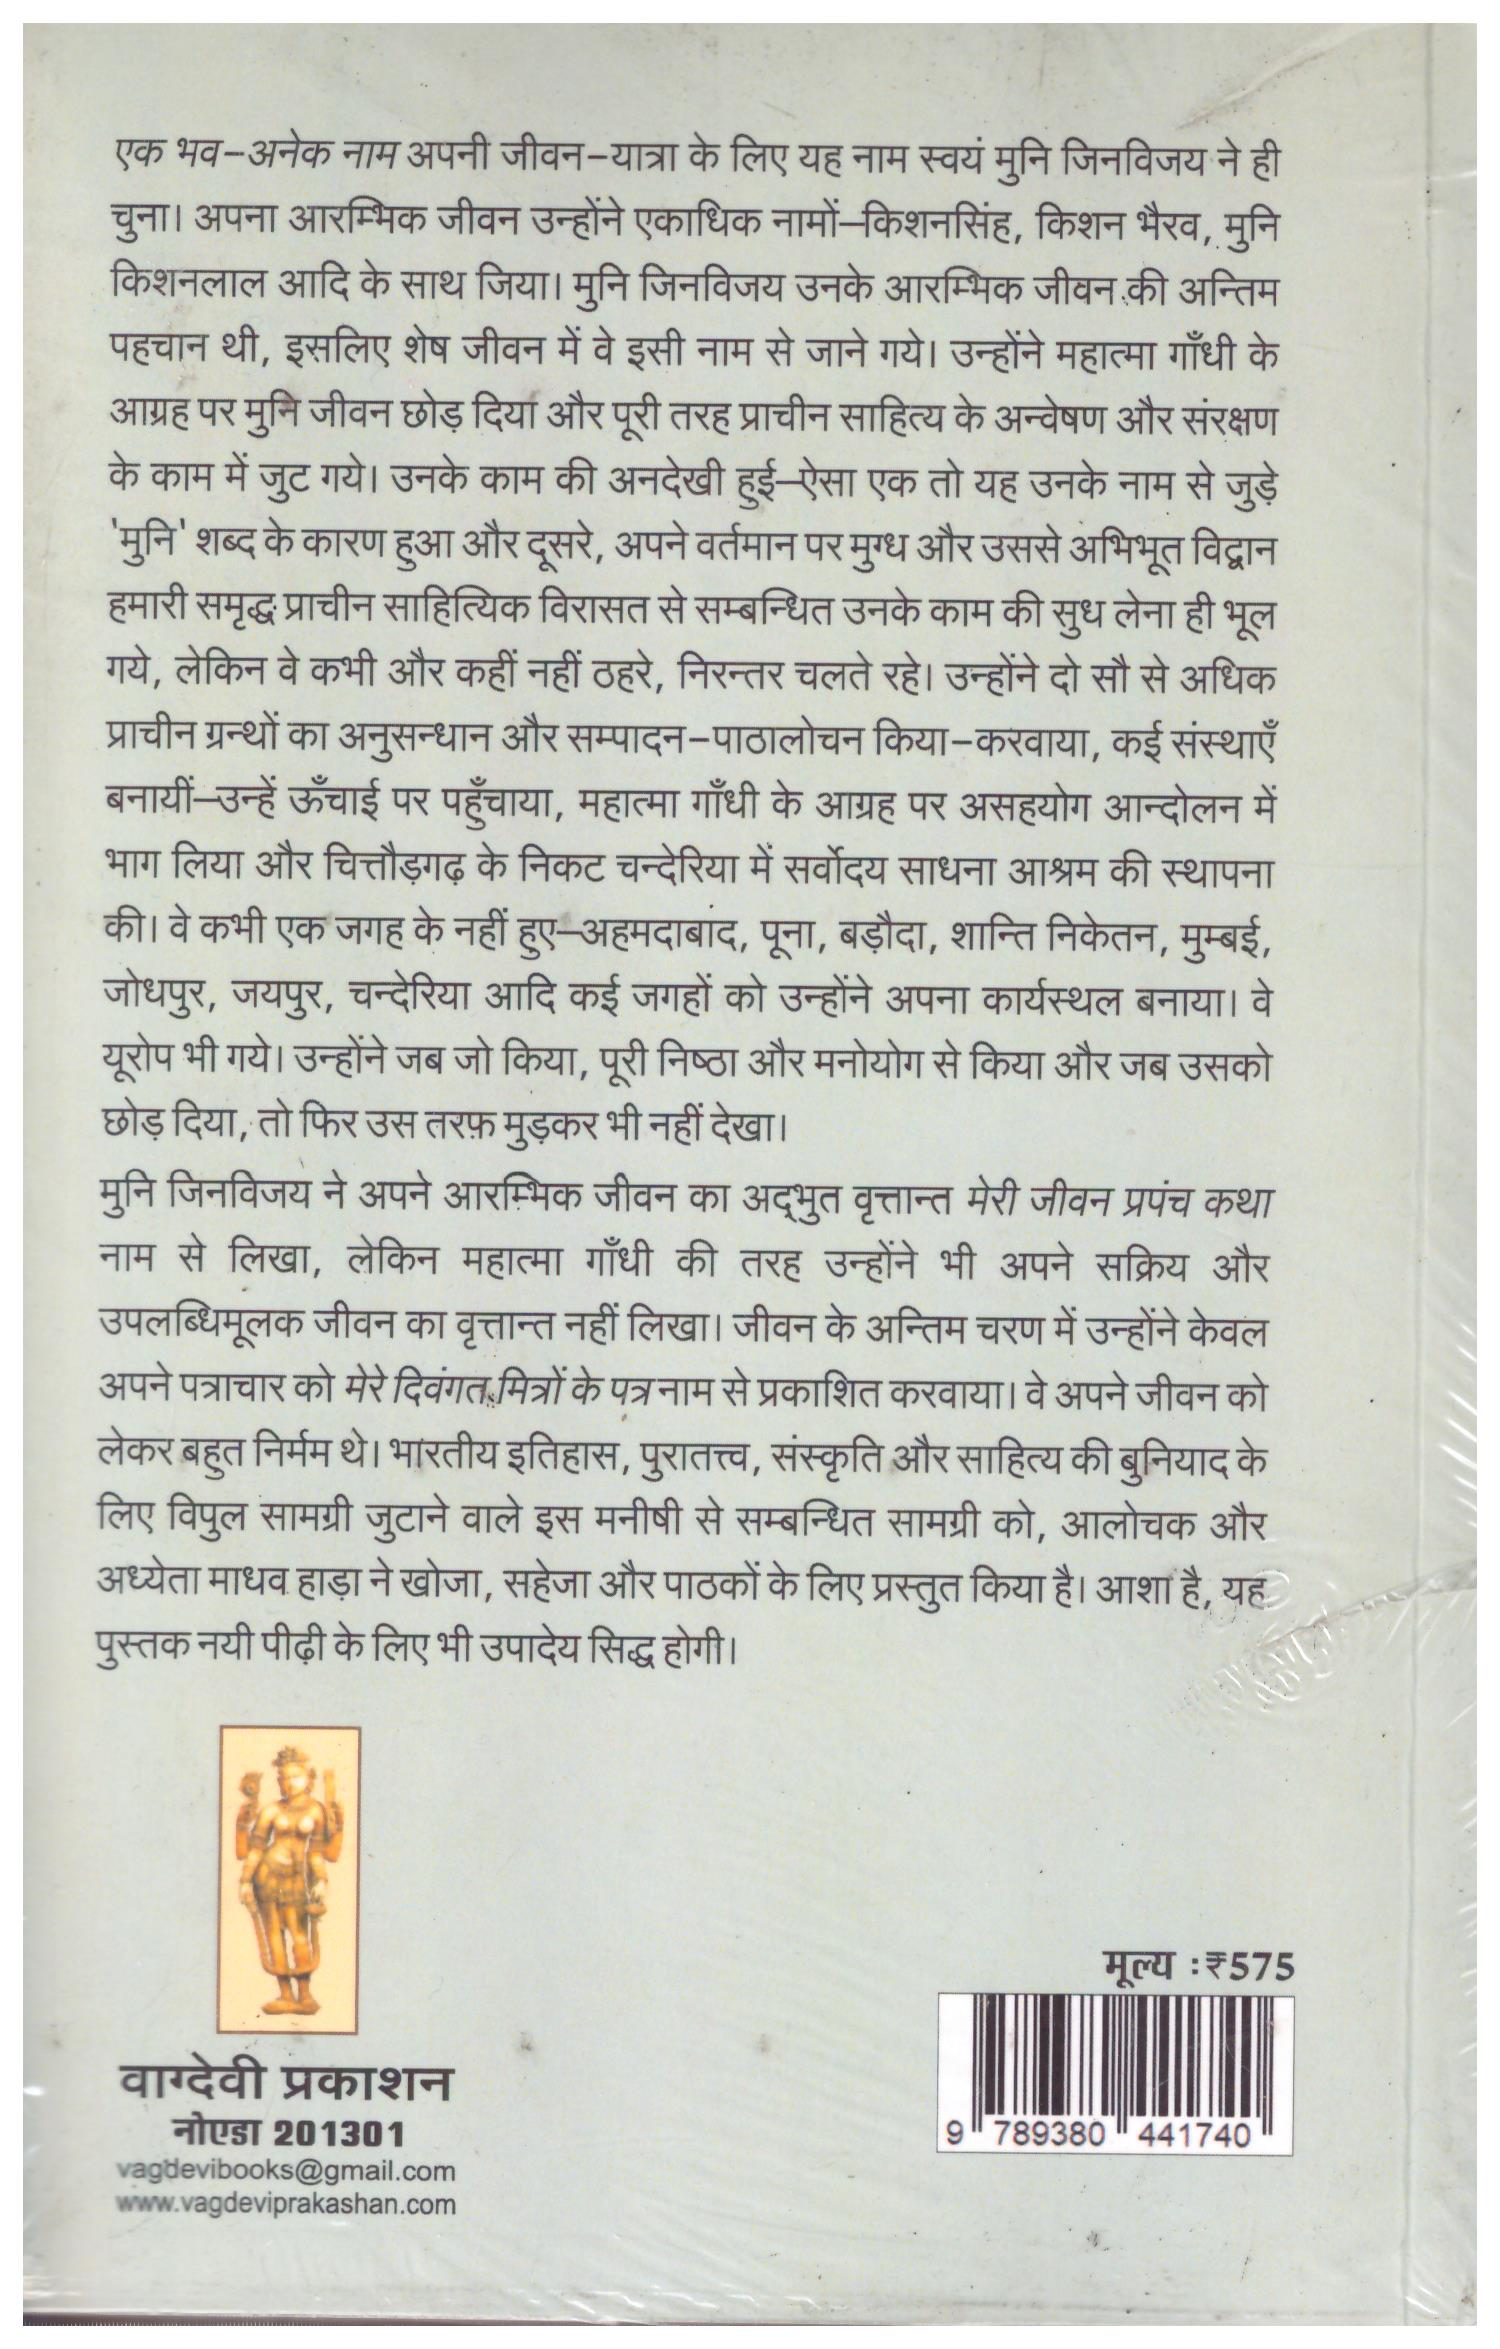 एक भव–अनेक नाम अपनी जीवन–यात्रा के लिए यह नाम स्वयं मुनि जिनविजय ने ही
चुना। अपना आरम्भिक जीवन उन्होंने एकाधिक नामों–किशनसिंह, किशन भैरव, मुनि
किशनलाल आदि के साथ जिया। मुनि जिनविजय उनके आरम्भिक जीवन की अन्तिम
पहचान थी, इसलिए शेष जीवन में वे इसी नाम से जाने गये। उन्होंने महात्मा गाँधी के
आग्रह पर मुनि जीवन छोड़ दिया और पूरी तरह प्राचीन साहित्य के अन्वेषण और संरक्षण
के काम में जुट गये। उनके काम की अनदेखी हुई–ऐसा एक तो यह उनके नाम से जुड़े
'मुनि' शब्द के कारण हुआ और दूसरे, अपने वर्तमान पर मुग्ध और उससे अभिभूत विद्वान
हमारी समृद्ध प्राचीन साहित्यिक विरासत से सम्बन्धित उनके काम की सुध लेना ही भूल
गये, लेकिन वे कभी और कहीं नहीं ठहरे, निरन्तर चलते रहे। उन्होंने दो सौ से अधिक
प्राचीन ग्रन्थों का अनुसन्धान और सम्पादन–पाठालोचन किया–करवाया, कई संस्थाएँ
बनायीं–उन्हें ऊँचाई पर पहुँचाया, महात्मा गाँधी के आग्रह पर असहयोग आन्दोलन में
भाग लिया और चित्तौड़गढ़ के निकट चन्देरिया में सर्वोदय साधना आश्रम की स्थापना
की। वे कभी एक जगह के नहीं हुए–अहमदाबाद, पूना, बड़ौदा, शान्ति निकेतन, मुम्बई,
जोधपुर, जयपुर, चन्देरिया आदि कई जगहों को उन्होंने अपना कार्यस्थल बनाया। वे
यूरोप भी गये। उन्होंने जब जो किया, पूरी निष्ठा और मनोयोग से किया और जब उसको
छोड़ दिया, तो फिर उस तरफ़ मुड़कर भी नहीं देखा।
मुनि जिनविजय ने अपने आरम्भिक जीवन का अद्‌भुत वृत्तान्त मेरी जीवन प्रपंच कथा
नाम से लिखा, लेकिन महात्मा गाँधी की तरह उन्होंने भी अपने सक्रिय और
उपलब्धिमूलक जीवन का वृत्तान्त नहीं लिखा। जीवन के अन्तिम चरण में उन्होंने केवल
अपने पत्राचार को मेरे दिवंगत मित्रों के पत्र नाम से प्रकाशित करवाया। वे अपने जीवन को
लेकर बहुत निर्मम थे। भारतीय इतिहास, पुरातत्त्व, संस्कृति और साहित्य की बुनियाद के
लिए विपुल सामग्री जुटाने वाले इस मनीषी से सम्बन्धित सामग्री को, आलोचक और
अध्येता माधव हाड़ा ने खोजा, सहेजा और पाठकों के लिए प्रस्तुत किया है। आशा है, यह
पुस्तक नयी पीढ़ी के लिए भी उपादेय सिद्ध होगी।
मूल्य :₹575
9 789380 441740
वाग्देवी प्रकाशन
नोएडा 201301
vagdevibooks@gmail.com
www.vagdeviprakashan.com